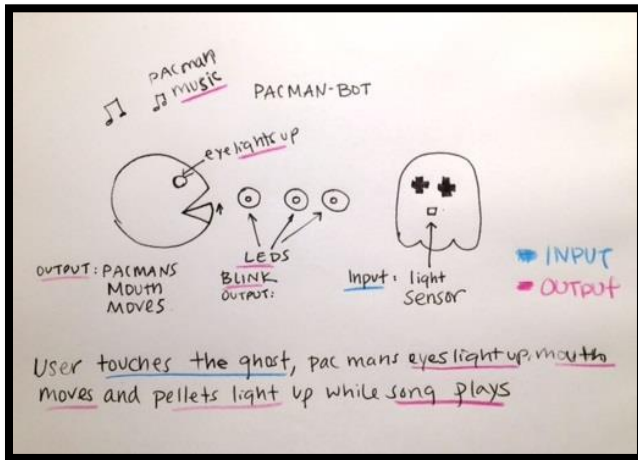 pacman
music
PACMAN-BOT
eye lights up
LEDS
BLINK
OUTPUT:
OUTPUT: PACMANS
MOUTH
MOVES
Input: light
Sensor
INPUT
OUTPUT
User touches the ghost, pac mans eyes light up, mouth
moves and pellets light up while song plays